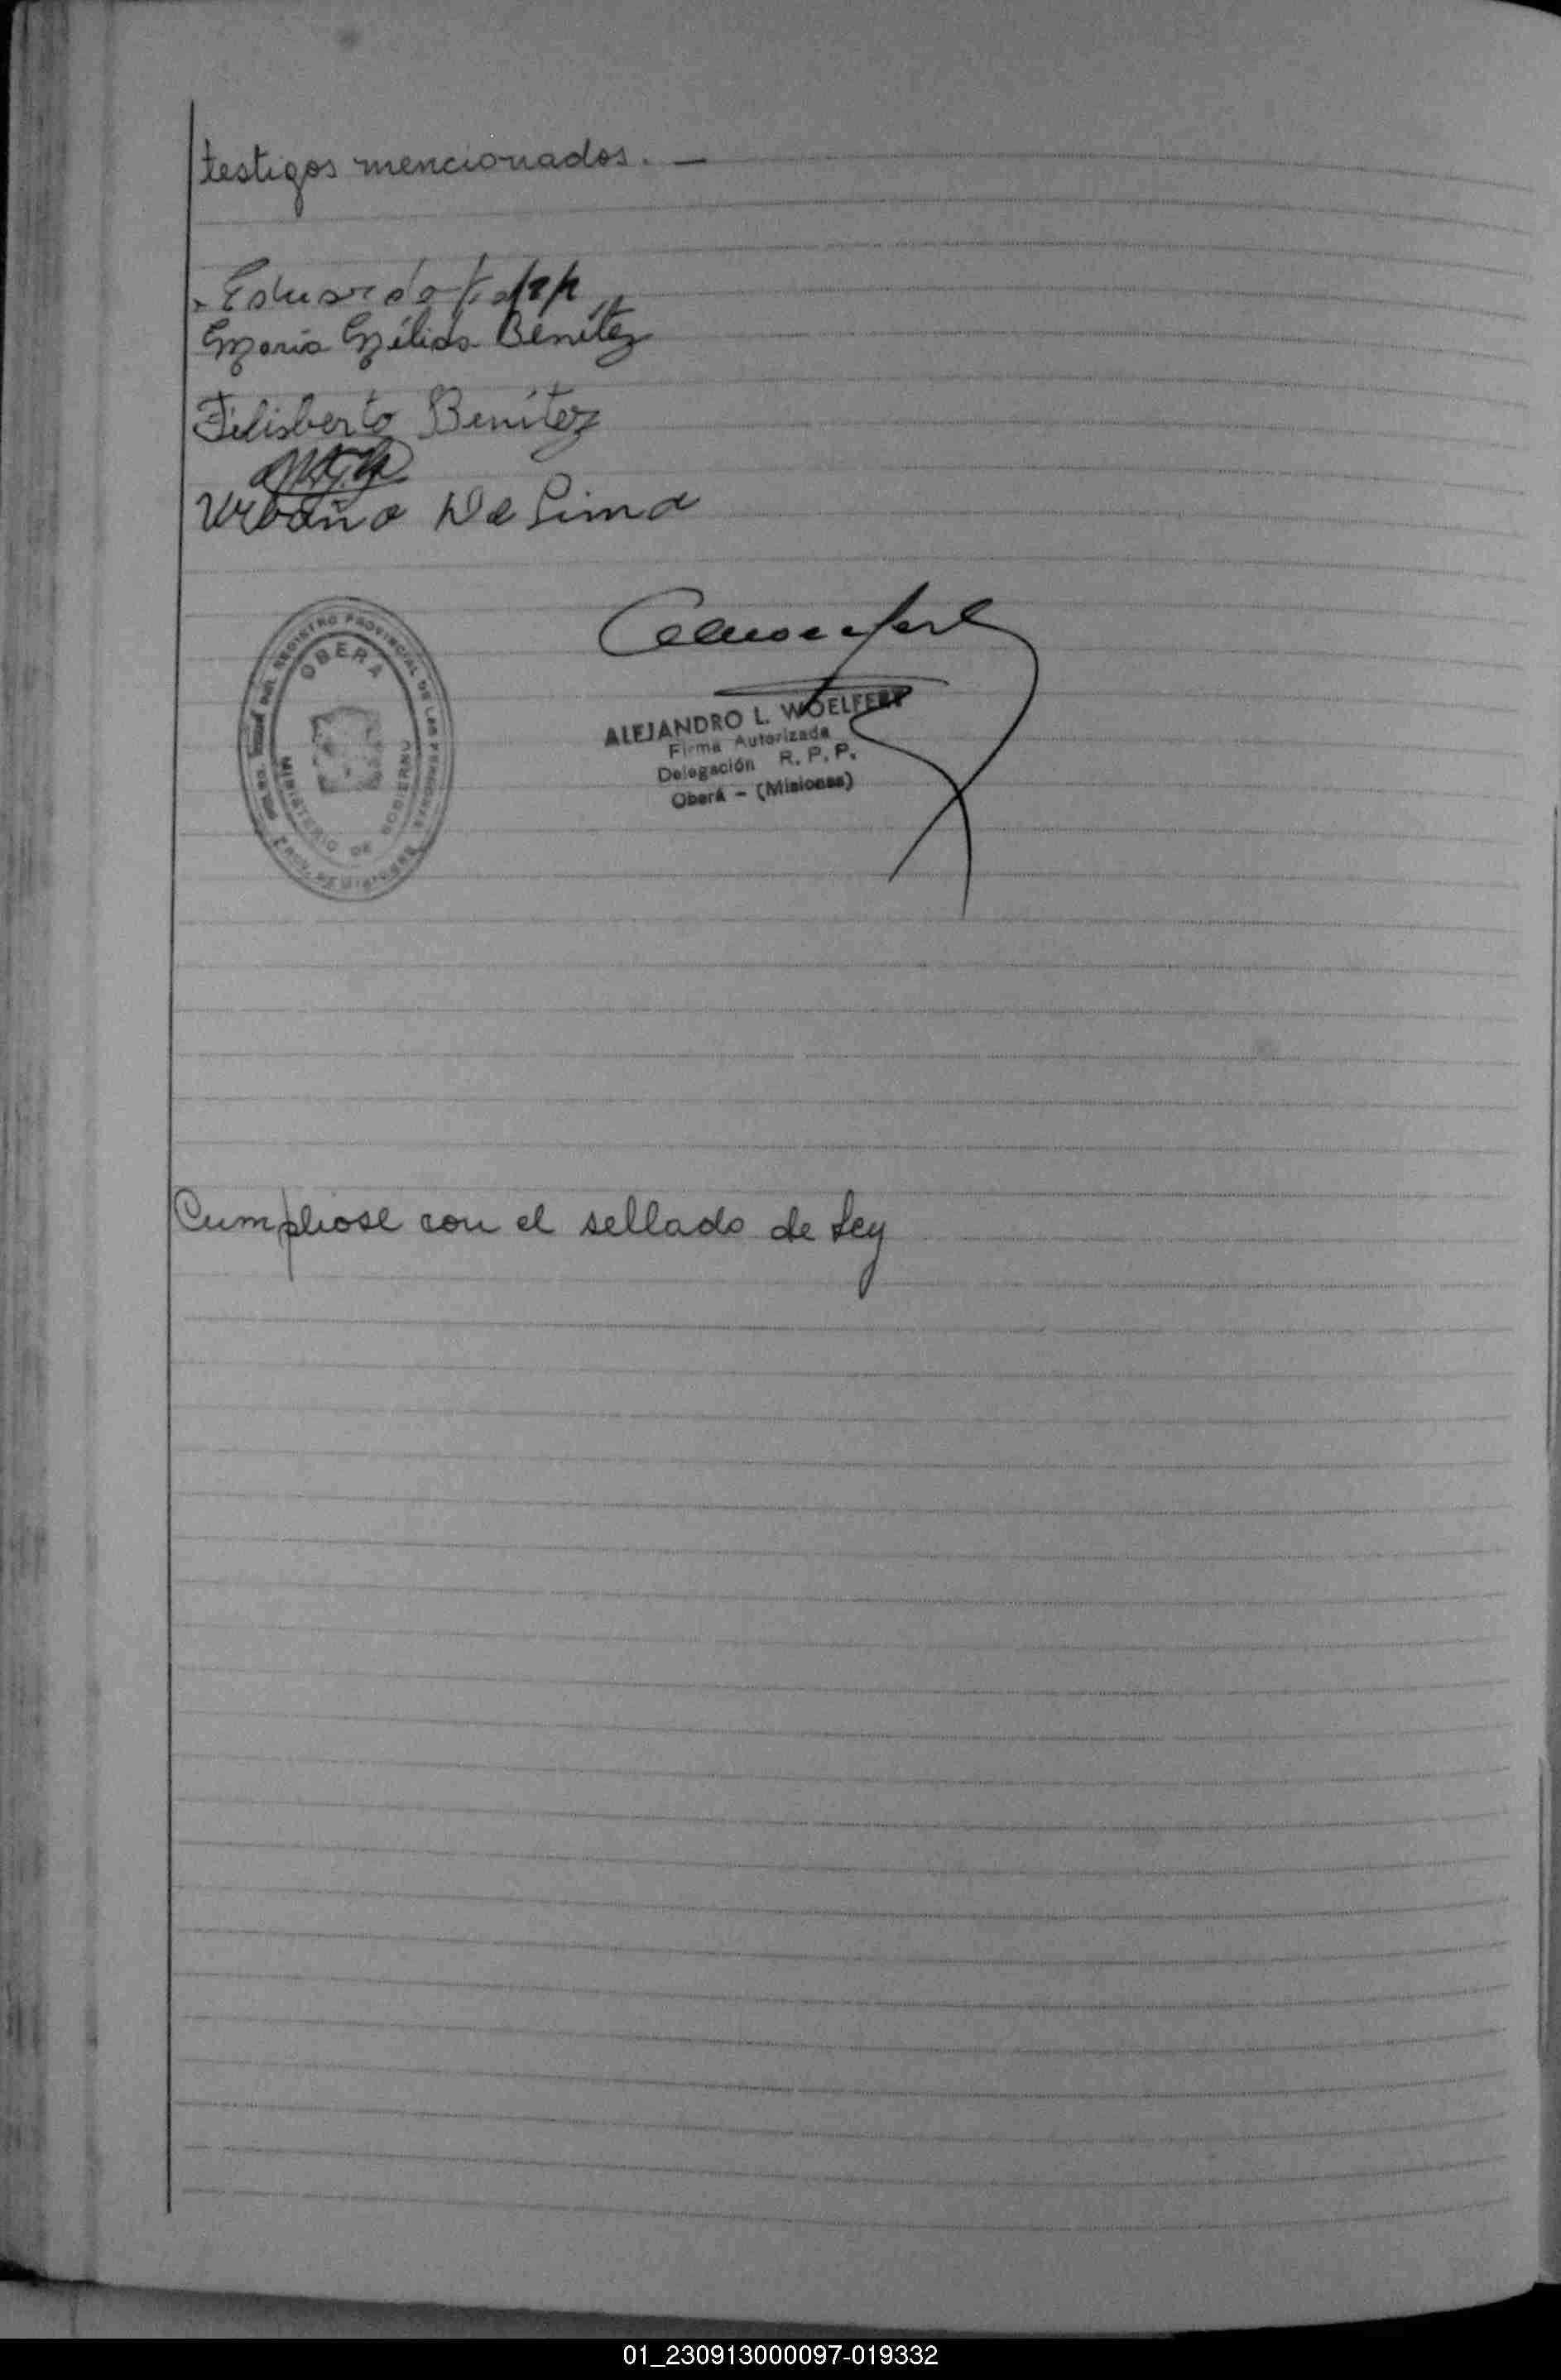 testigos mencionados. —
Eduardo
Maria Nélida Benítez
Filisberto Benítez
Urbano De Lima
OBERA
REGISTRO PROVINCIAL DE LAS PERSONAS
MINISTERIO DE GOBIERNO
ALEJANDRO L. WOELFERT
Firma Autorizada
Delegación R. P. P.
Oberá - (Misiones)
Cumpliose con el sellado de Ley
01_230913000097-019332